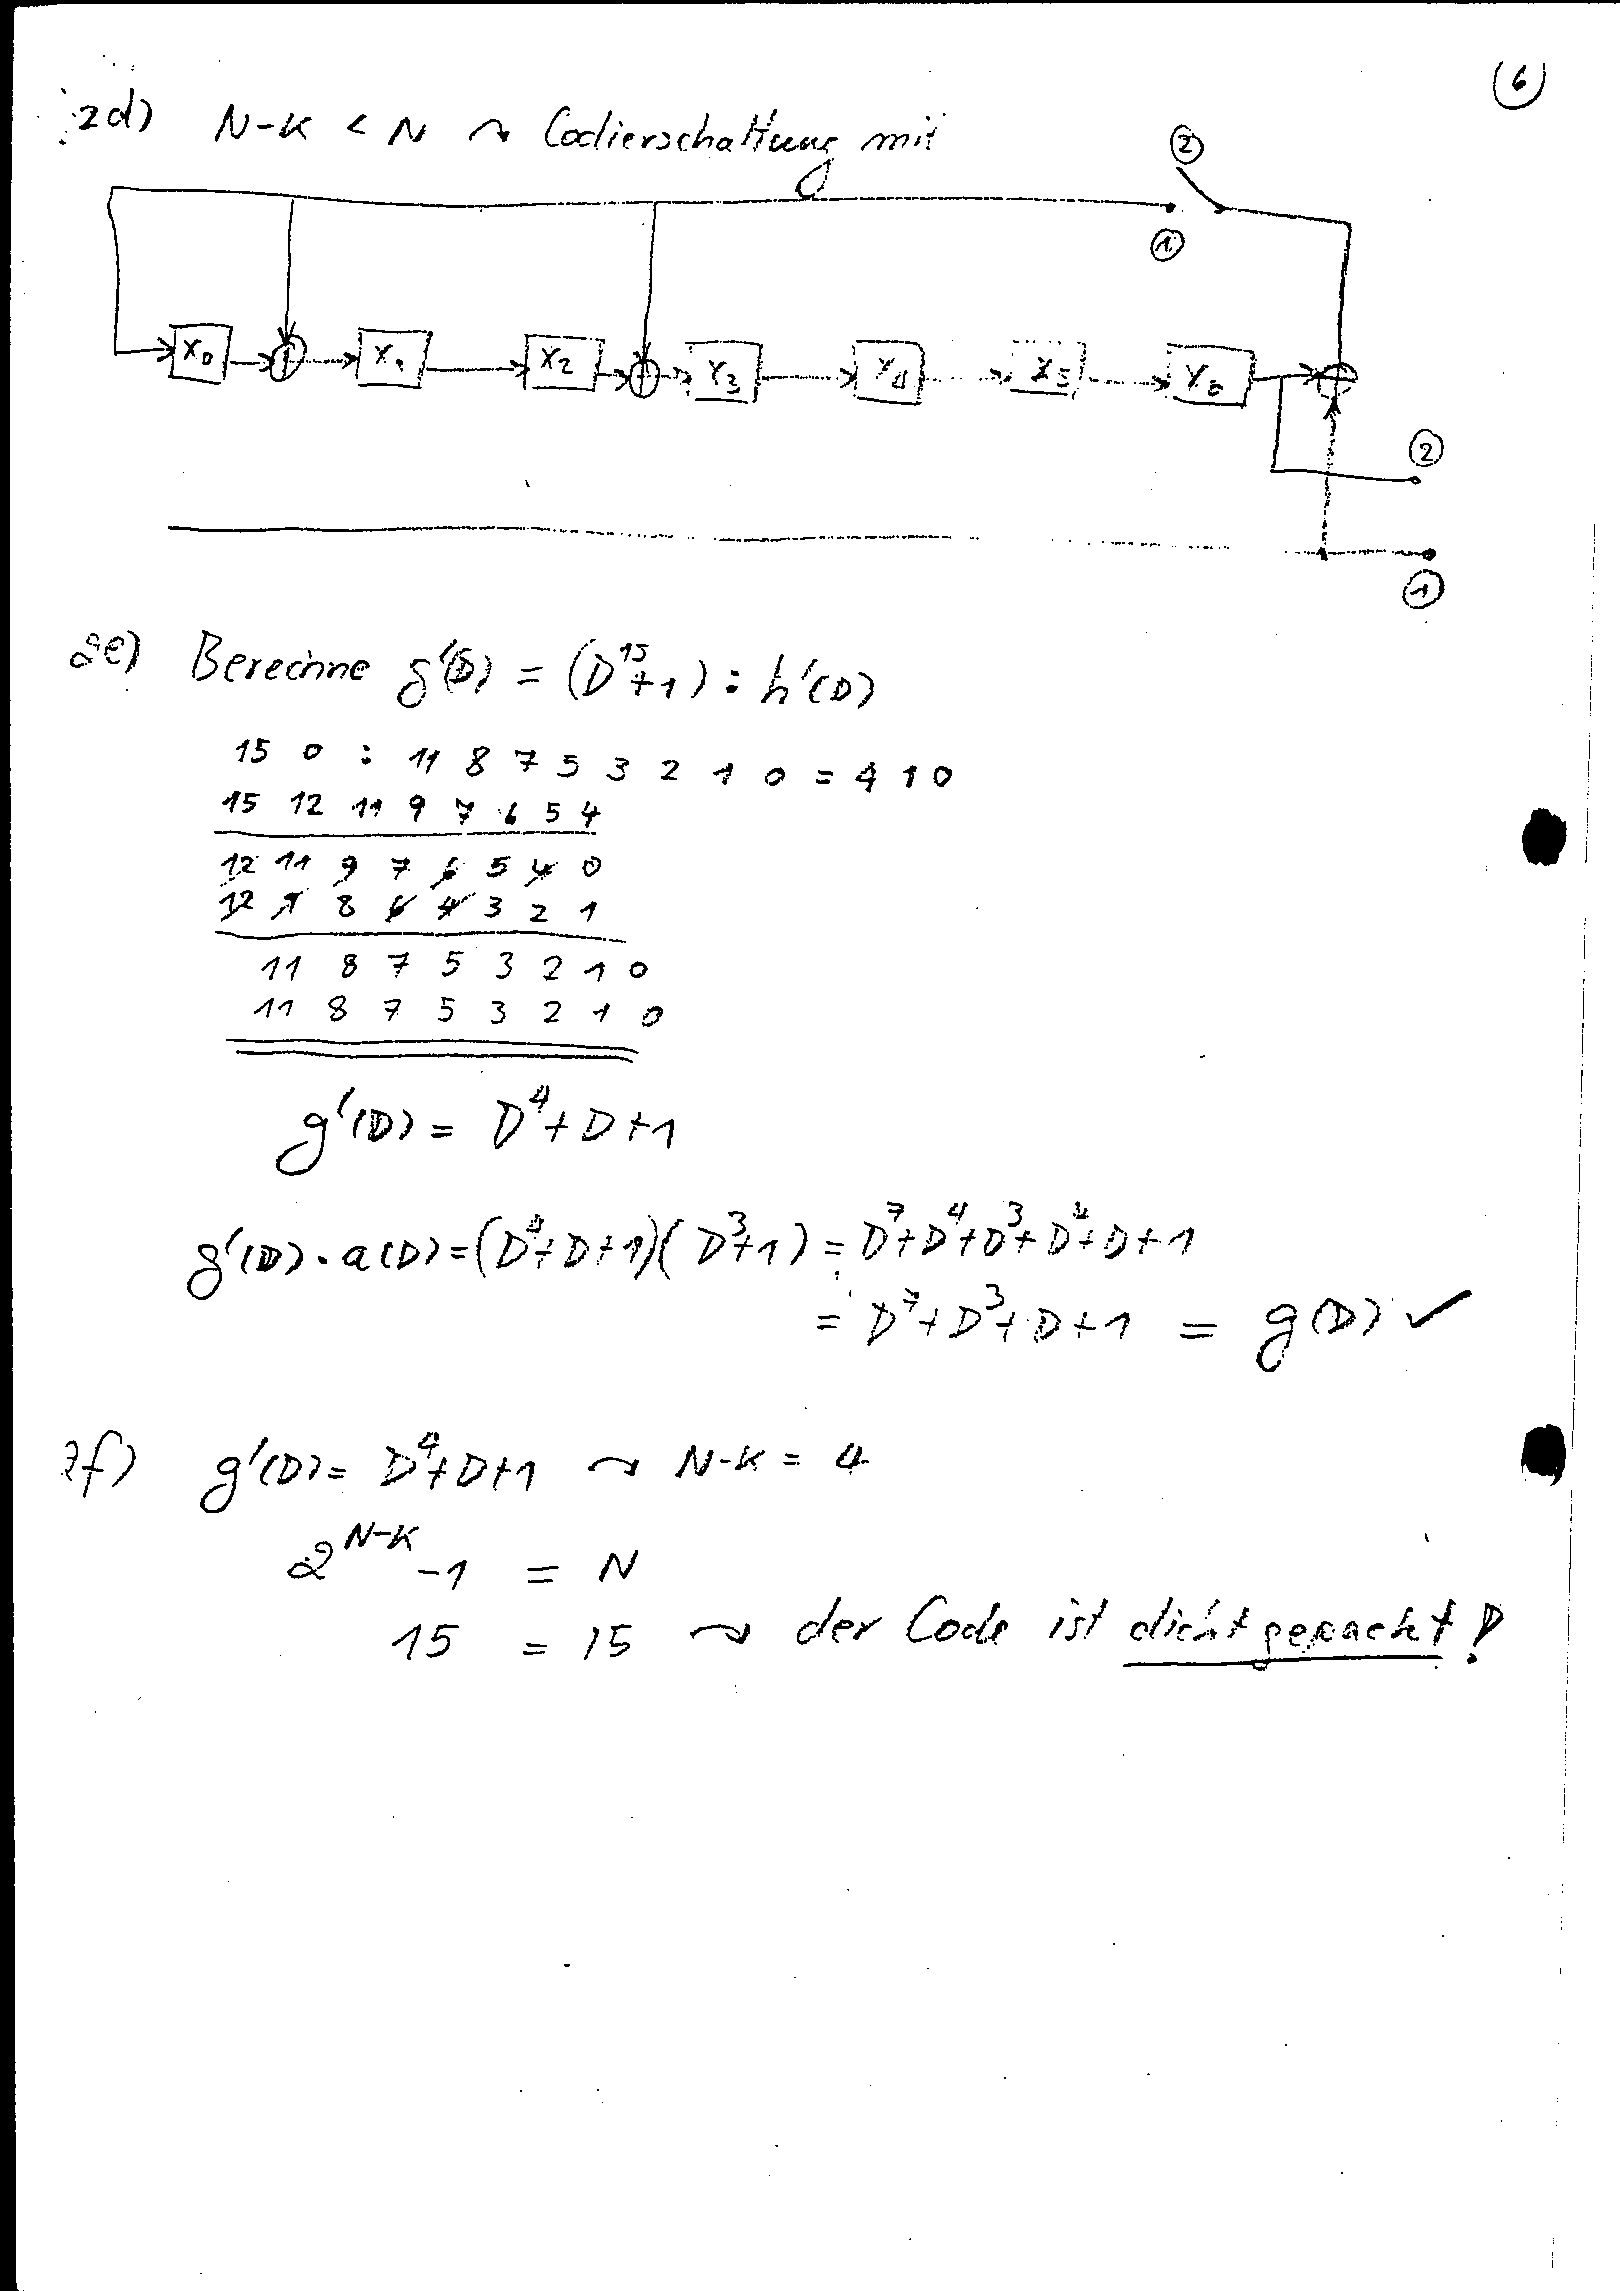 6
2d) N-K < N ⤳ Codierschaltung mit
2
1
x0 x1 x2 x3 x4 x5 x6
2
1
2e) Berechne g'(D) = (D^15+1) : h'(D)
15 0 : 11 8 7 5 3 2 1 0 = 4 1 0
15 12 11 9 7 6 5 4
12 11 9 7 6 5 4 0
12 9 8 6 4 3 2 1
11 8 7 5 3 2 1 0
11 8 7 5 3 2 1 0
g'(D) = D^4+D+1
g'(D)·a(D)=(D^4+D+1)(D^3+1) = D^7+D^4+D^3+D^4+D+1
= D^7+D^3+D+1 = g(D) ✓
2f) g'(D)= D^4+D+1 ⤳ N-K = 4
2^N-K -1 = N
15 = 15 ⤳ der Code ist dichtgepackt!